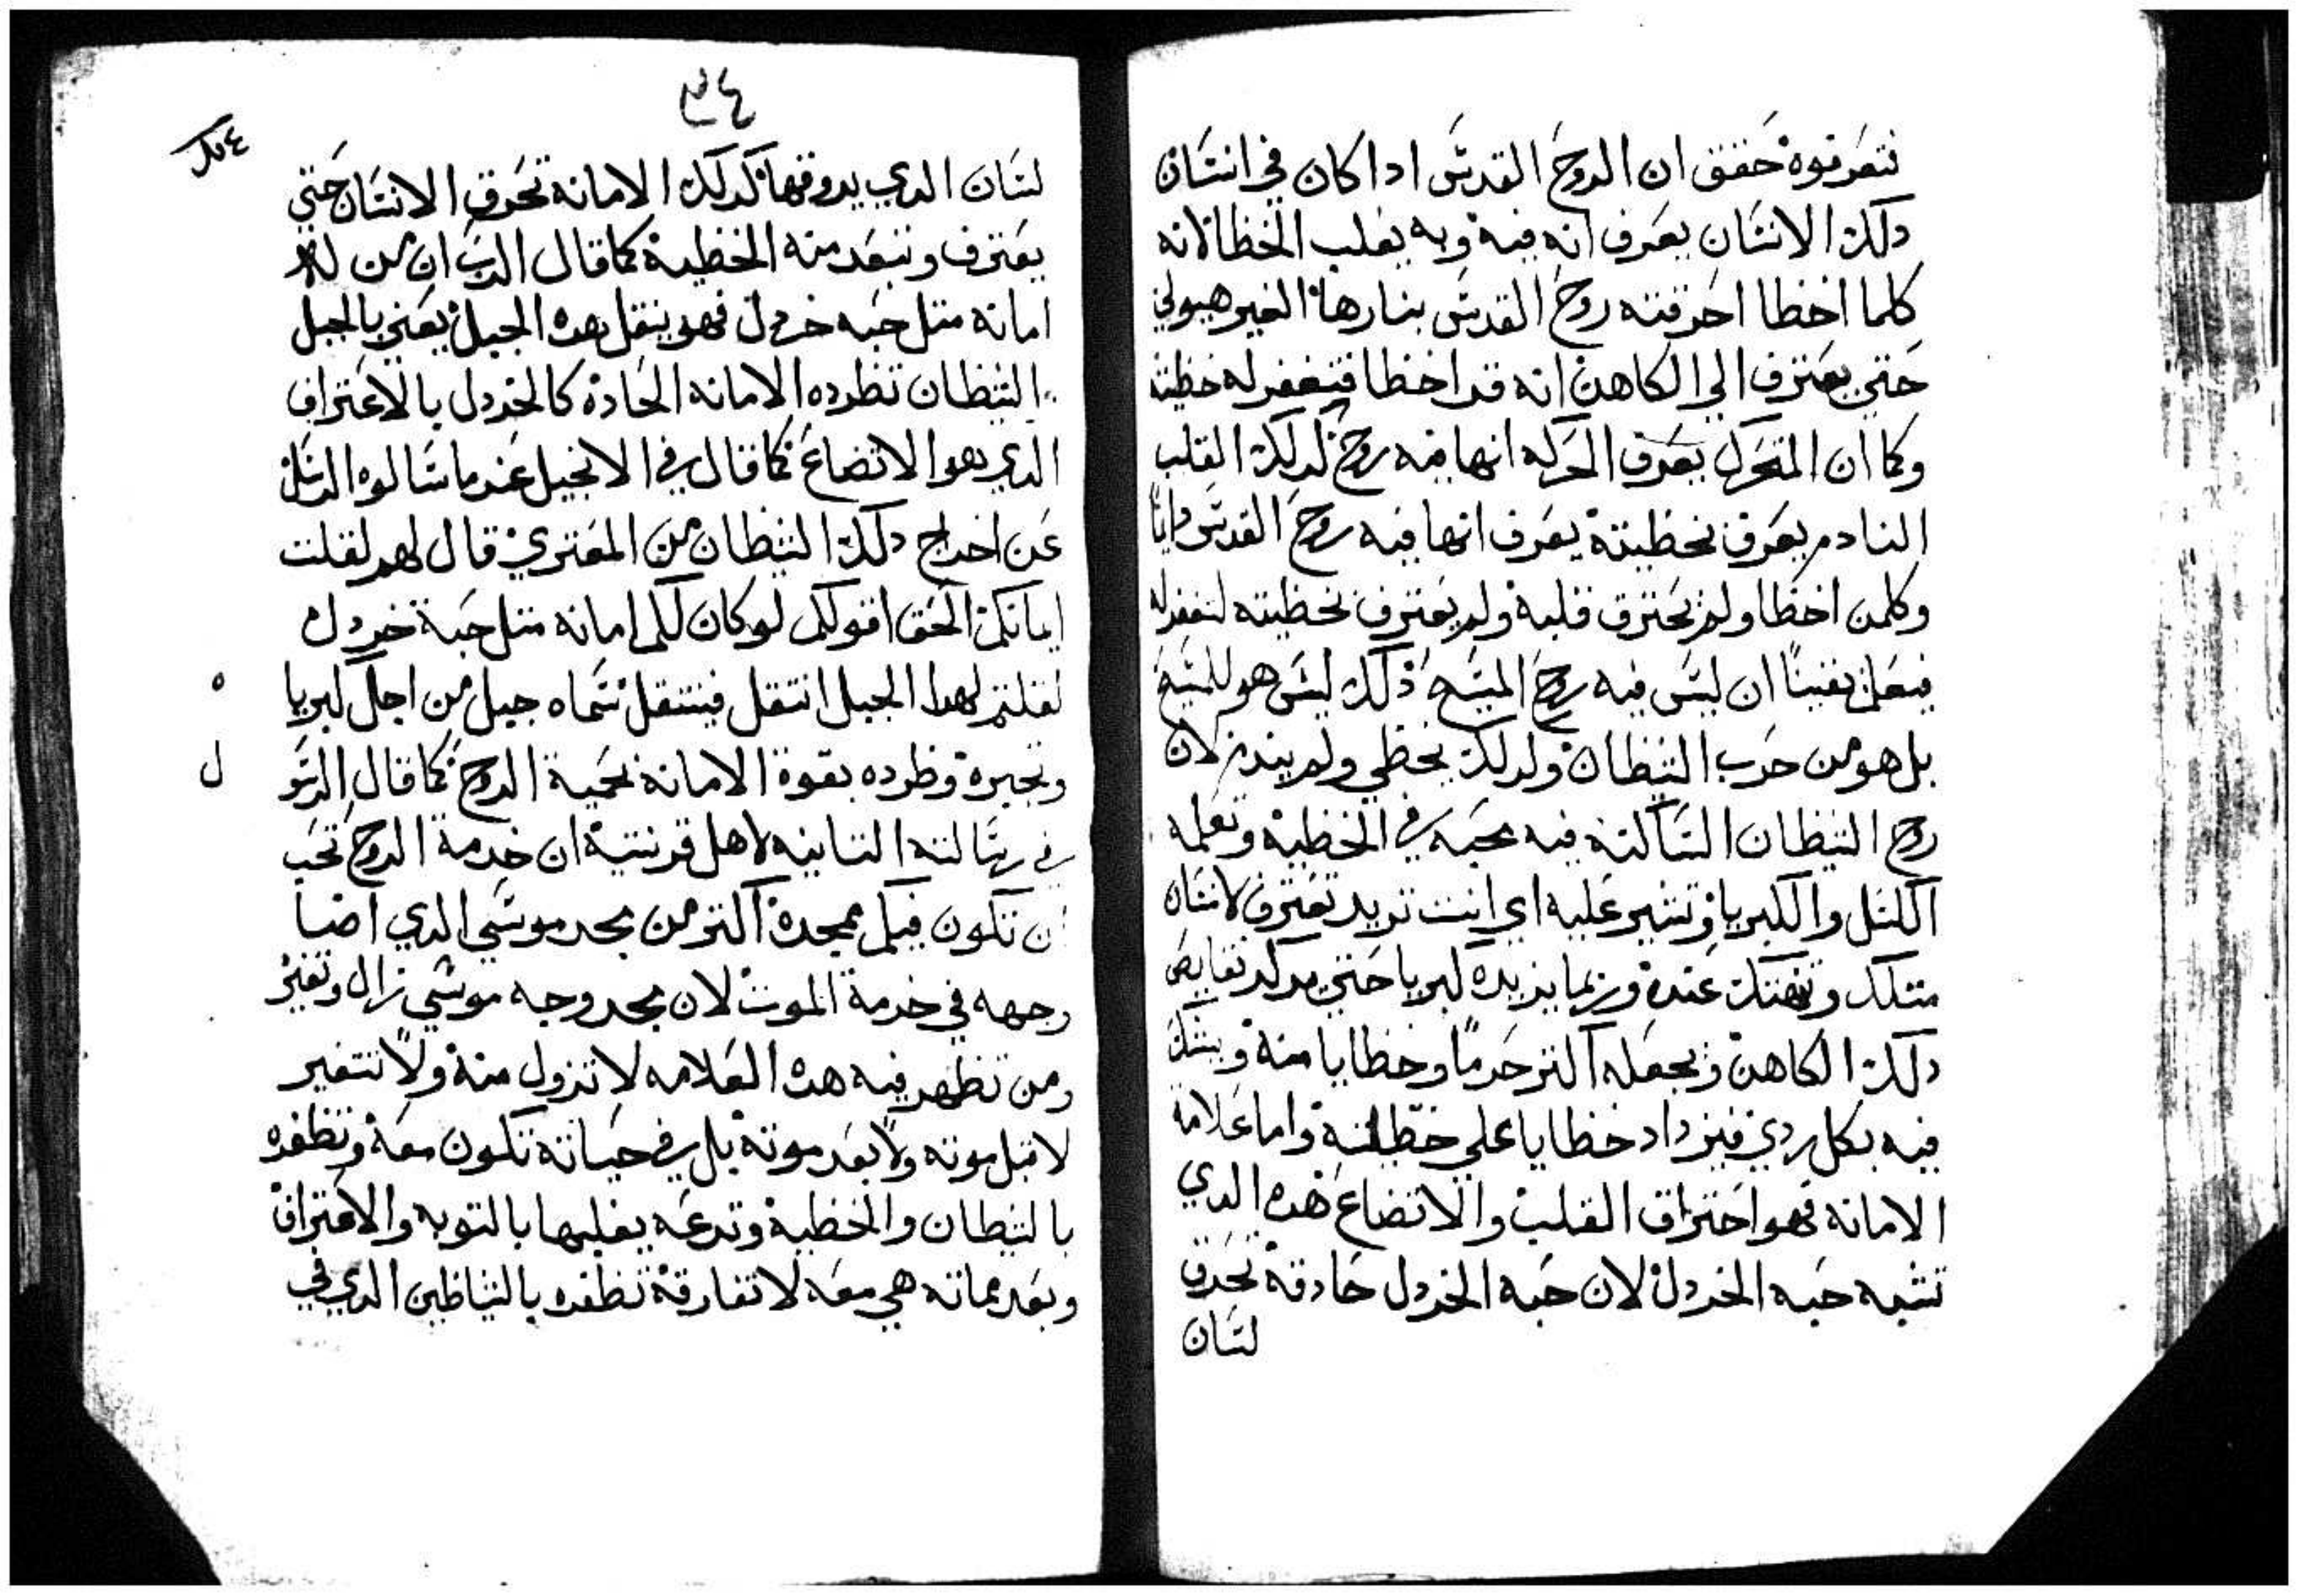 نتعرفوه حقق ان الروح القدس ادا كان في انسان
دلك الانسان يعرف انه فيه وبه يغلب الخطا لانه
كلما اخطا احرقته روح القدس بنارها الغير هيولي
حتي يعترف الي الكاهن انه قد اخطا فتغفر له خطيته
وكما ان المتحرك يعرف الحركه انها فيه روح كدلك القلب
النادم يعرف بخطيته يعرف انها فيه روح القدس وايا
وكلمن اخطا ولم يحترق قلبه ولم يعترف بخطيته لتغفر له
فيعلم يقينا ان ليس فيه روح المسيح دلك ليس هو للمسيح
بل هو من حرب الشيطان ولدلك يخطي ولم يندم لان
روح الشيطان الساكنه فيه تحببه في الخطية وتعلمه
الكسل والكبريا وتشير عليه اي انت تريد تعترف لانسان
متلك وتهتك عنده وربما يزيده كبريا حتي يدكر نقايص
دلك الكاهن ويجعله اكتر جرما وخطايا منه ويشك
فيه بكل ردي فيزداد خطايا علي خطاياه واما علامة
الامانه فهو احتراق القلب والاتضاع هده الدي
تشبه حبه الخردل لان حبه الخردل حادقة تحرق
لسان
٣٤
لسان الدي يدوقها كدلك الامانه تحرق الانسان حتي
يعترف وتبعد منه الخطية كما قال الرب ان من له
امانه متل حبه خردل فهو ينقل هده الجبل يعني بالجبل
الشيطان تطرده الامانه الحاده كالخردل بالاعتراف
الدي هو الاتضاع كما قال في الانجيل عندما سالوه الرسل
عن اخراج دلك الشيطان من المعتري قال لهم لقلت
ايمانكم الحق اقولكم لو كان لكم امانه متل حبة خردل
لقلتم لهدا الجبل انتقل فينتقل سماه جبل من اجل كبريا
وتجبره وطرده بقوة الامانه بحمية الروح كما قال الرسو
ل
في رسالته التانيه لاهل قرنتية ان خدمة الروح تحب
ان تكون فيكم ممجدة اكتر من مجد موسي الدي اضيا
وجهه في خدمة الموت لان مجد وجه موسي زال وتغير
ومن تظهر فيه هده العلامه لا تزول منه ولا تتغير
لا قبل موته ولا بعد موته بل في حياته تكون معه وتظفره
بالشيطان والخطية وتدعه يغلبها بالتوبه والاعتراف
وبعد مماته هي معه لا تفارقه تظفره بالشياطين الدي في